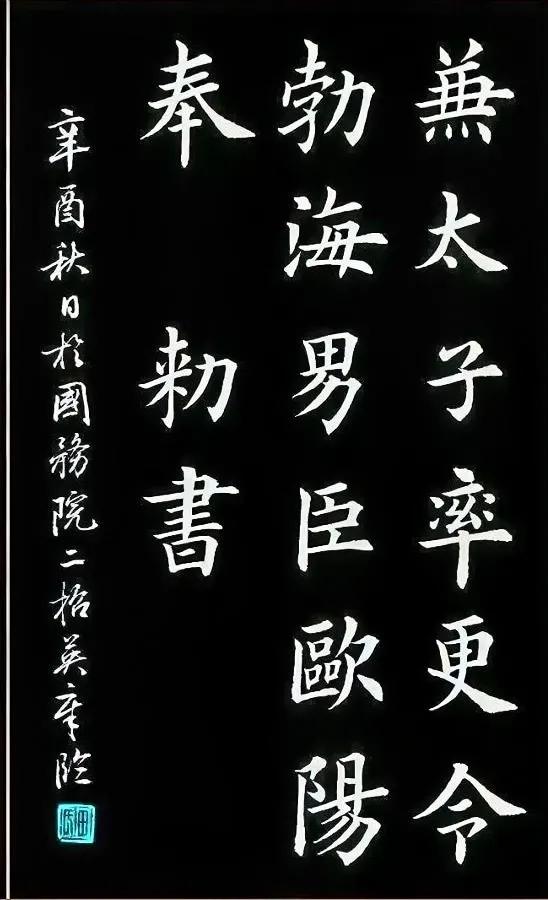 兼太子率更令
勃海男臣歐陽
奉 勑書
辛酉秋日於國務院二招英章臨